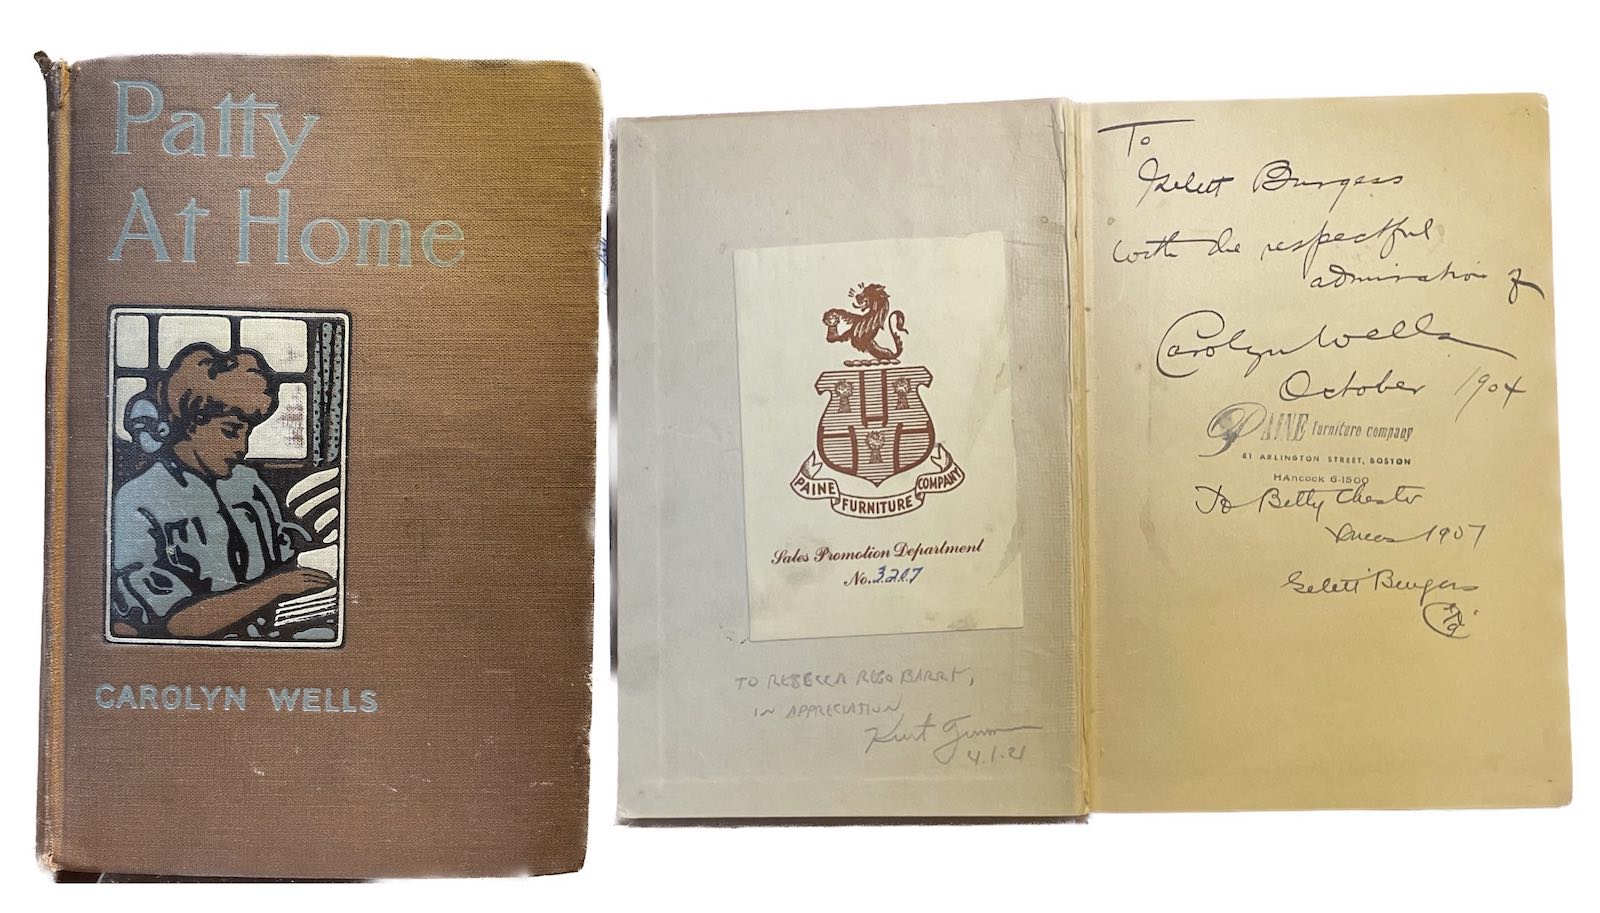 Patty
At Home
CAROLYN WELLS
PAINE FURNITURE COMPANY
Sales Promotion Department
No. 3207
TO REBECCA REGO BARRY,
IN APPRECIATION
Kurt
4.1.21
To
Gelett Burgess
with the respectful
admiration of
Carolyn Wells
October 1904
PAINE furniture company
81 ARLINGTON STREET, BOSTON
HANcock 6-1500
To Betty Chester
1907
Gelett Burgess